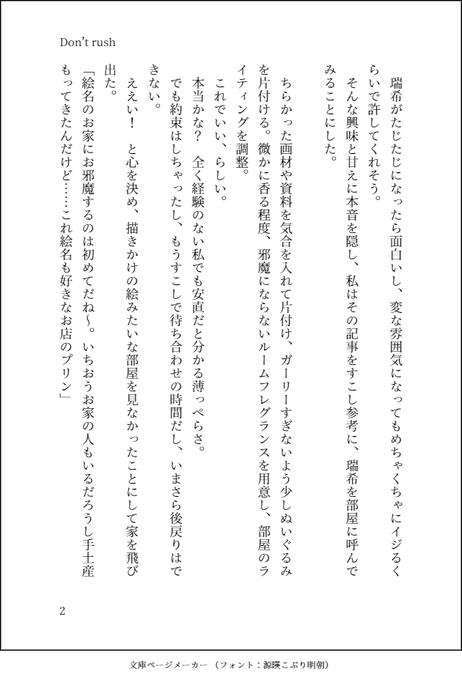 Don't rush
　瑞希がたじたじになったら面白いし、変な雰囲気になってもめちゃくちゃにイジるく
らいで許してくれそう。
　そんな興味と甘えに本音を隠し、私はその記事をすこし参考に、瑞希を部屋に呼んで
みることにした。
　ちらかった画材や資料を気合を入れて片付け、ガーリーすぎないよう少しぬいぐるみ
を片付ける。微かに香る程度、邪魔にならないルームフレグランスを用意し、部屋のラ
イティングを調整。
　これでいい、らしい。
　本当かな？　全く経験のない私でも安直だと分かる薄っぺらさ。
　でも約束はしちゃったし、もうすこしで待ち合わせの時間だし、いまさら後戻りはで
きない。
　ええい！　と心を決め、描きかけの絵みたいな部屋を見なかったことにして家を飛び
出た。
「絵名のお家にお邪魔するのは初めてだね〜。いちおうお家の人もいるだろうし手土産
もってきたんだけど……これ絵名も好きなお店のプリン」
2
文庫ページメーカー（フォント：源暎こぶり明朝）